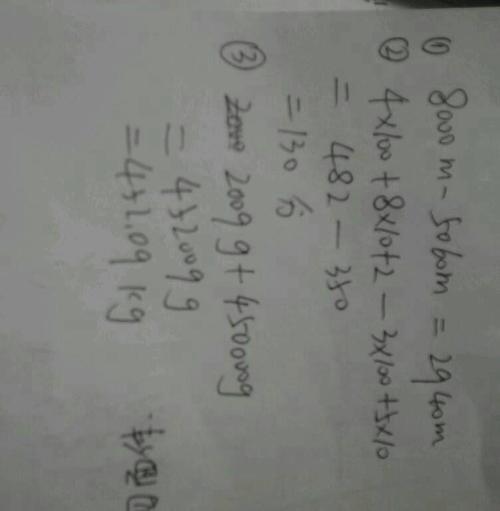 ① 8000m - 5060m = 2940m
② 4×100+8×10+2 - 3×100+5×10
= 482 - 350
= 130 分
③ 2009g + 450000g
= 452009g
= 452.09kg